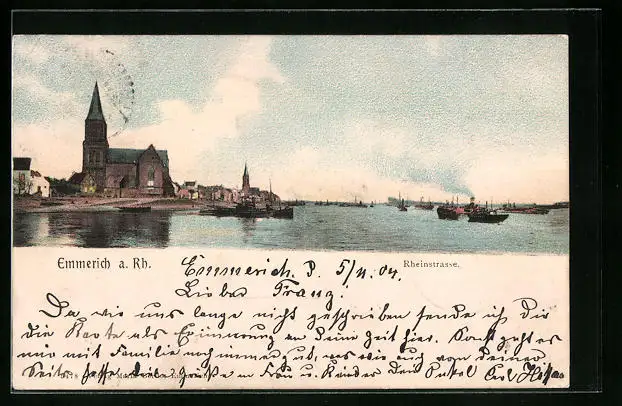 Emmerich a. Rh.
Emmerich. d. 5/11.04.
Rheinstrasse.
Lieber Franz.
Da wir uns lange nicht geschrieben sende ich Dir
die Karte als Erinnerung an Deine Zeit hier. Sonst geht es
mir mit Familie noch immer gut, was wir auch von Deiner
Seite hoffe. Frau u. Kinder Dein Onkel Carl